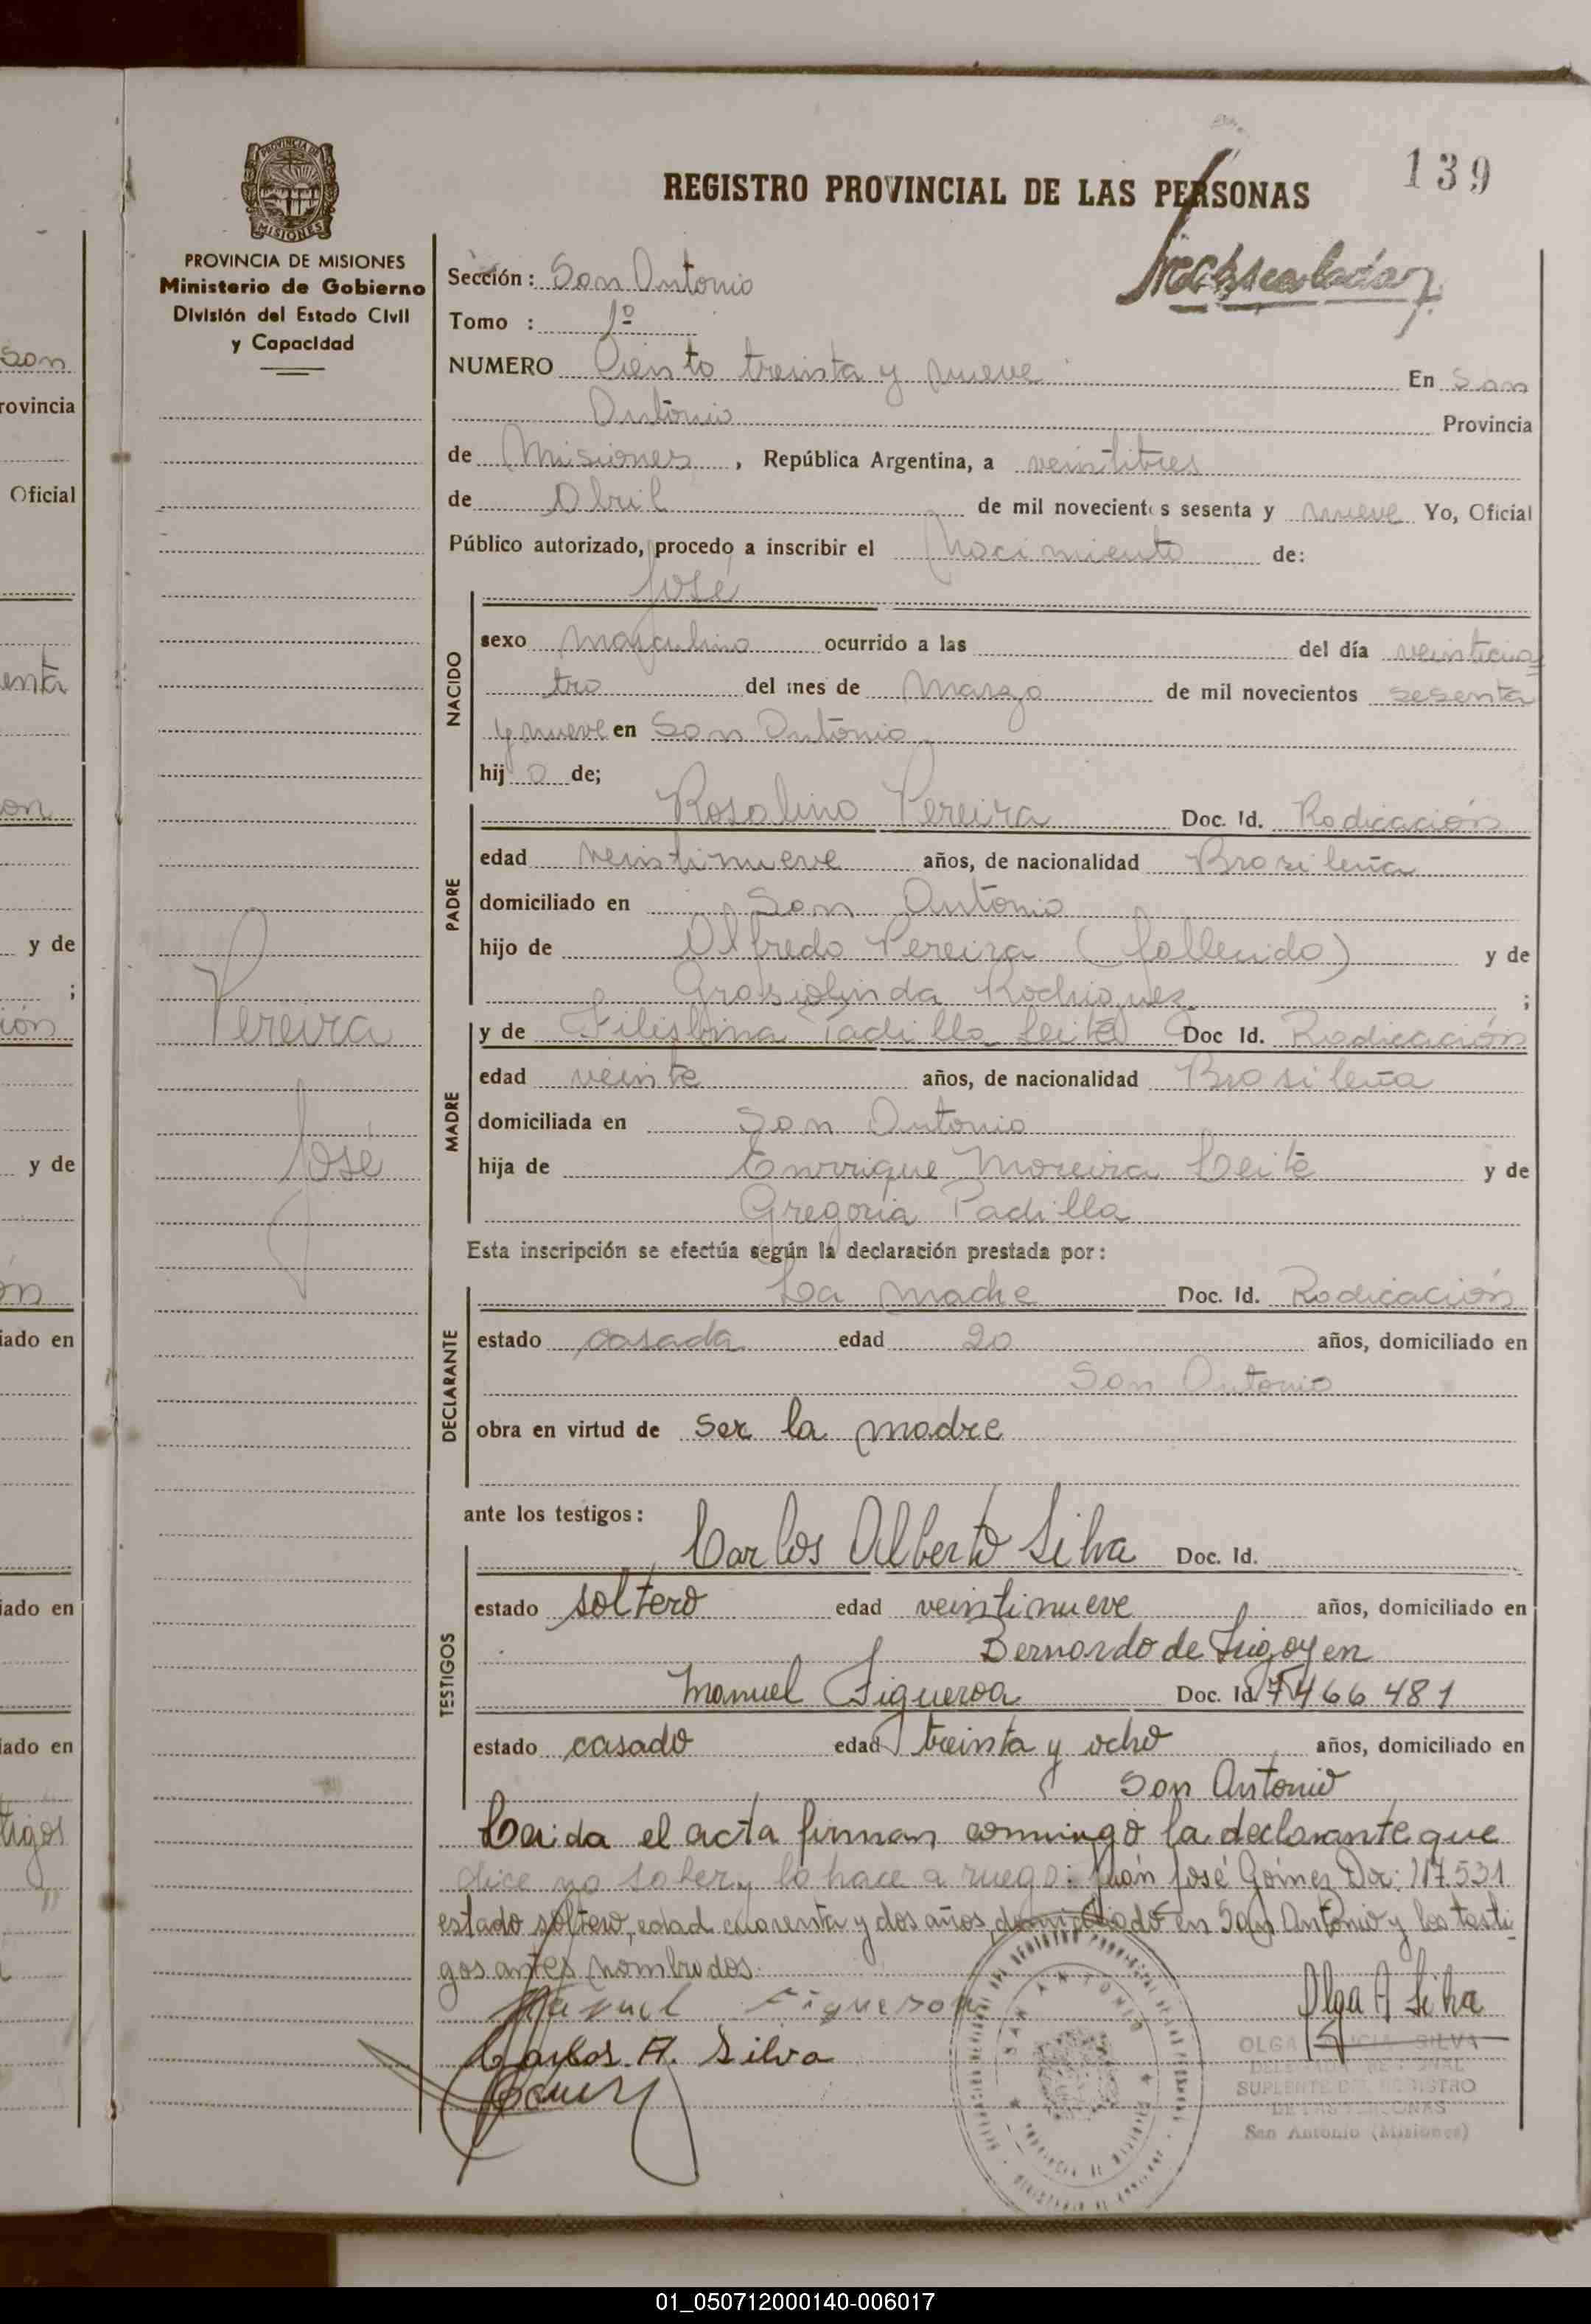 139
REGISTRO PROVINCIAL DE LAS PERSONAS
PROVINCIA DE MISIONES
Ministerio de Gobierno
División del Estado Civil
y Capacidad
Sección: San Antonio
Tomo : 1º
NUMERO Ciento treinta y nueve En San
Antonio Provincia
de Misiones, República Argentina, a veintitres
de Abril de mil novecientos sesenta y nueve Yo, Oficial
Público autorizado, procedo a inscribir el Nacimiento de:
José
NACIDO
sexo masculino ocurrido a las del día veinticua=
tro del mes de Marzo de mil novecientos sesenta
y nueve en San Antonio
hij o de;
PADRE
Rosalino Pereira Doc. Id. Radicación
edad veintinueve años, de nacionalidad Brasileña
domiciliado en San Antonio
hijo de Alfredo Pereira (fallecido) y de
Rodriguez ;
Pereira
José
MADRE
y de Padilla Leite Doc Id. Radicación
edad veinte años, de nacionalidad Brasileña
domiciliada en San Antonio
hija de Enrrique Moreira Leite y de
Gregoria Padilla
Esta inscripción se efectúa según la declaración prestada por:
DECLARANTE
La madre Doc. Id. Radicación
estado casada edad 20 años, domiciliado en
San Antonio
obra en virtud de ser la madre
ante los testigos:
TESTIGOS
Carlos Alberto Silva Doc. Id.
estado soltero edad veintinueve años, domiciliado en
Bernardo de Irigoyen
Manuel Figueroa Doc. Id. 7466481
estado casado edad treinta y ocho años, domiciliado en
San Antonio
Leida el acta firman conmingo la declarante que
dice no saber y lo hace a ruego: Juán José Gómez Doc: 117.531
estado soltero, edad cuarenta y dos años, domiciliado en San Antonio y los testi-
gos antes nombrados.
Manuel Figueroa
Carlos A. Silva
Olga A Silva
OLGA SILVA
SUPLENTE DEL REGISTRO
DE LAS PERSONAS
San Antonio (Misiones)
01_050712000140-006017